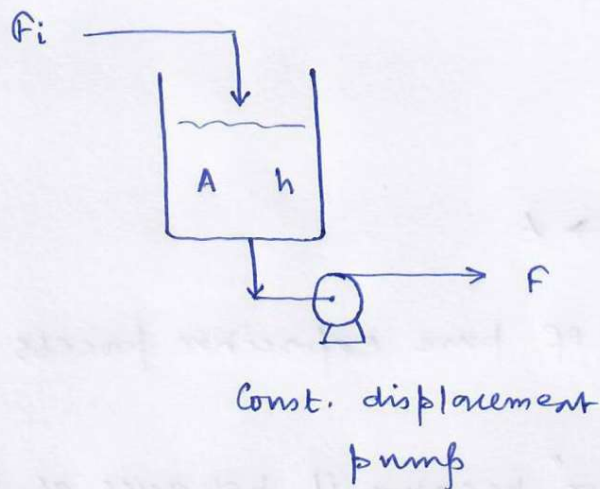 Fi
A h
F
Const. displacement
pump